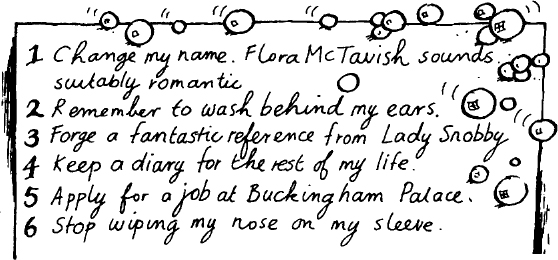 1 Change my name. Flora McTavish sounds
suitably romantic
2 Remember to wash behind my ears.
3 Forge a fantastic reference from Lady Snobby
4 Keep a diary for the rest of my life.
5 Apply for a job at Buckingham Palace.
6 Stop wiping my nose on my sleeve.